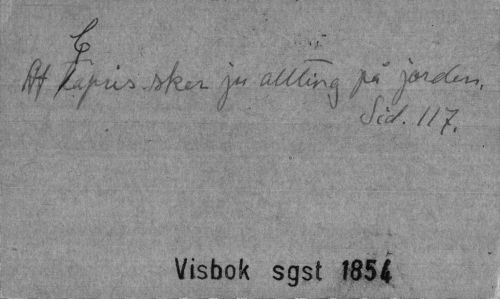 Af Capris sker ju allting på jorden.
Sid. 117.
Visbok sgst 1854